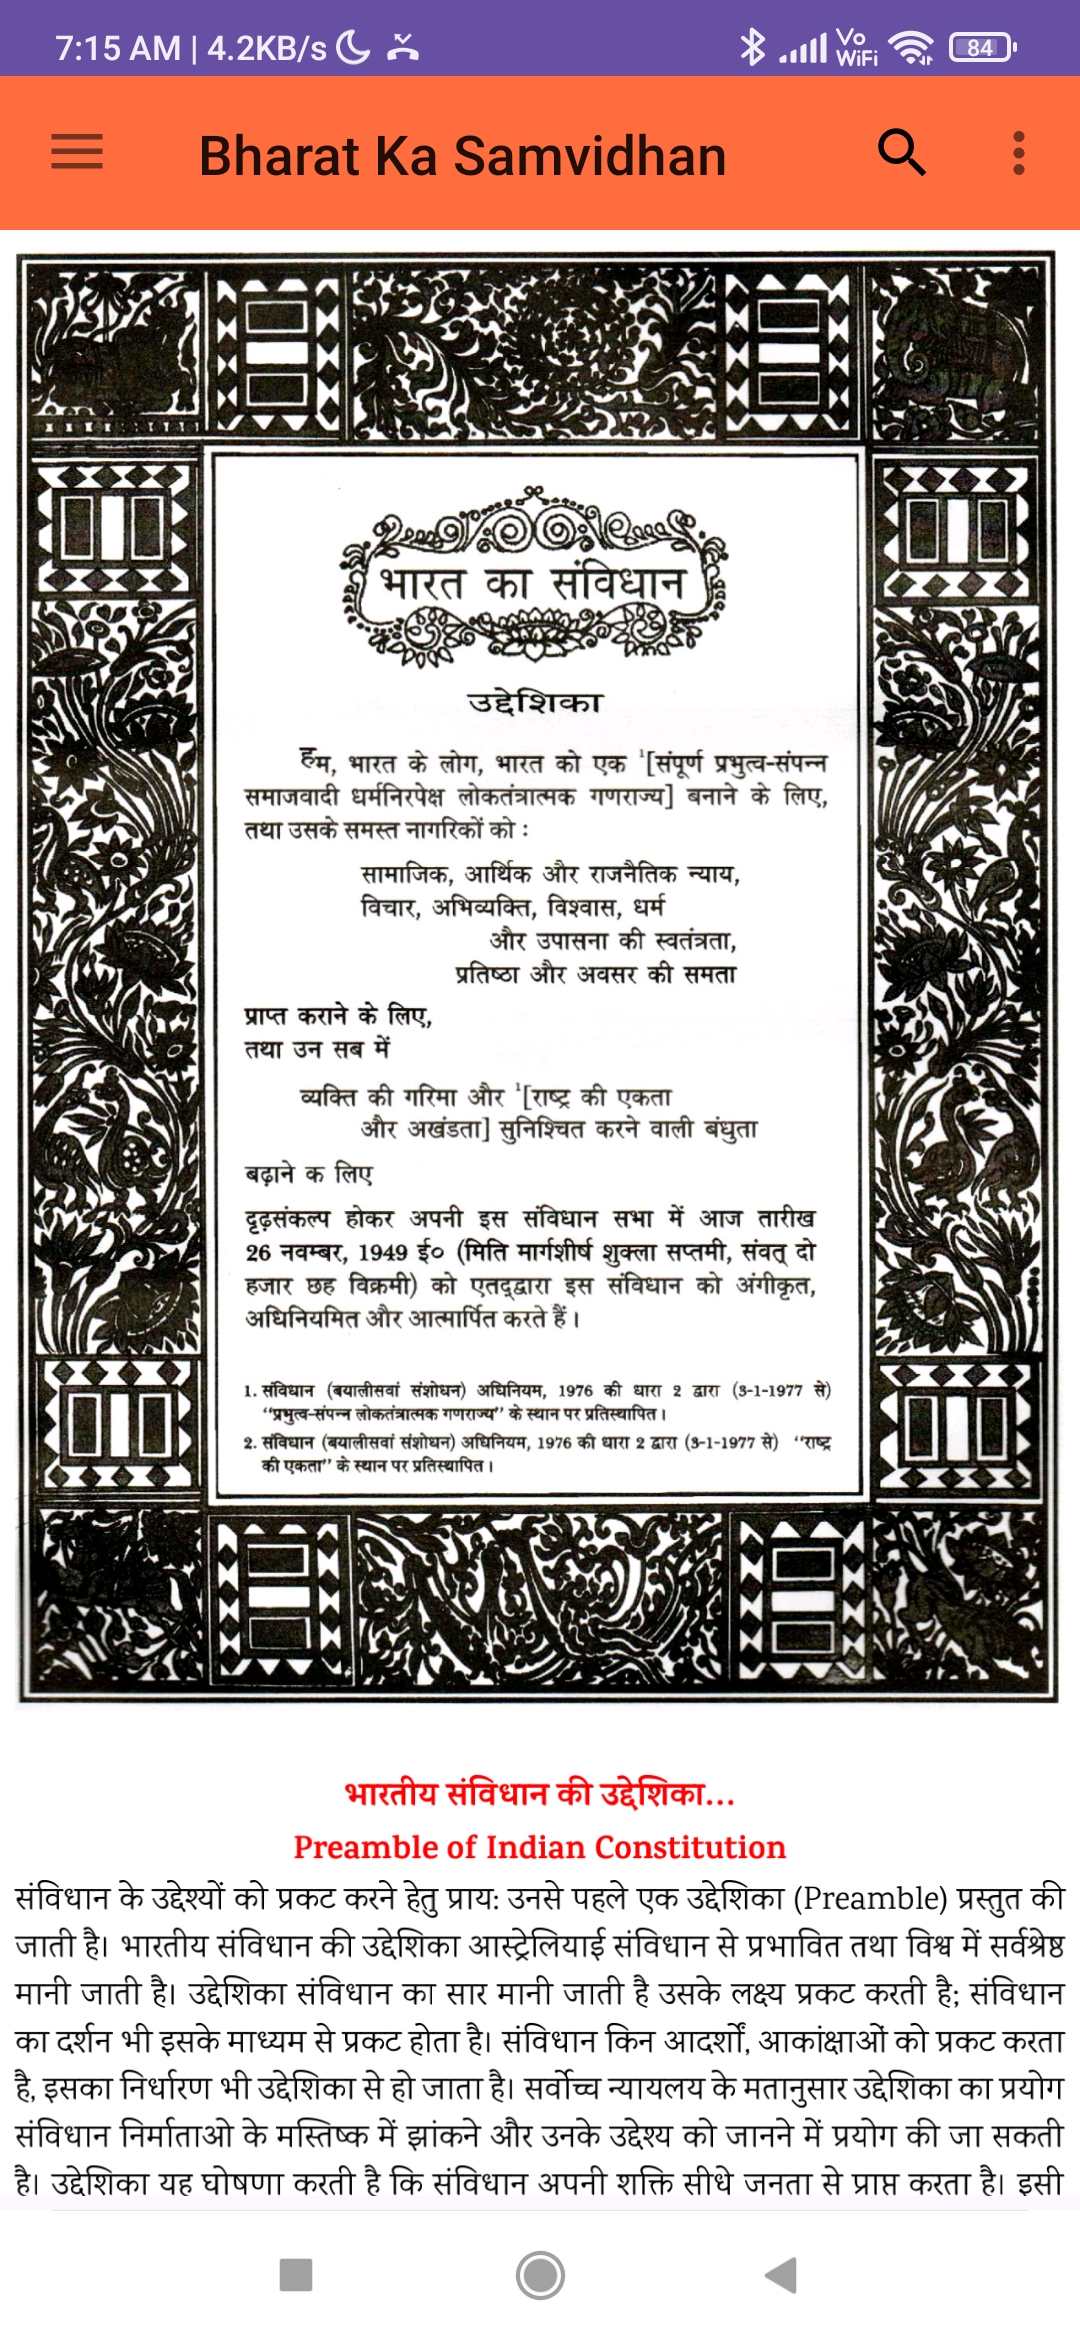 7:15 AM | 4.2KB/s
Vo WiFi
84
Bharat Ka Samvidhan
भारत का संविधान
उद्देशिका
हम, भारत के लोग, भारत को एक ¹[संपूर्ण प्रभुत्व-संपन्न
समाजवादी धर्मनिरपेक्ष लोकतंत्रात्मक गणराज्य] बनाने के लिए,
तथा उसके समस्त नागरिकों को :
सामाजिक, आर्थिक और राजनैतिक न्याय,
विचार, अभिव्यक्ति, विश्वास, धर्म
और उपासना की स्वतंत्रता,
प्रतिष्ठा और अवसर की समता
प्राप्त कराने के लिए,
तथा उन सब में
व्यक्ति की गरिमा और ¹[राष्ट्र की एकता
और अखंडता] सुनिश्चित करने वाली बंधुता
बढ़ाने क लिए
दृढ़संकल्प होकर अपनी इस संविधान सभा में आज तारीख
26 नवम्बर, 1949 ई० (मिति मार्गशीर्ष शुक्ला सप्तमी, संवत् दो
हजार छह विक्रमी) को एतद्द्वारा इस संविधान को अंगीकृत,
अधिनियमित और आत्मार्पित करते हैं।
1. संविधान (बयालीसवां संशोधन) अधिनियम, 1976 की धारा 2 द्वारा (3-1-1977 से)
‘‘प्रभुत्व-संपन्न लोकतंत्रात्मक गणराज्य’’ के स्थान पर प्रतिस्थापित।
2. संविधान (बयालीसवां संशोधन) अधिनियम, 1976 की धारा 2 द्वारा (3-1-1977 से) ‘‘राष्ट्र
की एकता’’ के स्थान पर प्रतिस्थापित।
भारतीय संविधान की उद्देशिका...
Preamble of Indian Constitution
संविधान के उद्देश्यों को प्रकट करने हेतु प्राय: उनसे पहले एक उद्देशिका (Preamble) प्रस्तुत की
जाती है। भारतीय संविधान की उद्देशिका आस्ट्रेलियाई संविधान से प्रभावित तथा विश्व में सर्वश्रेष्ठ
मानी जाती है। उद्देशिका संविधान का सार मानी जाती है उसके लक्ष्य प्रकट करती है; संविधान
का दर्शन भी इसके माध्यम से प्रकट होता है। संविधान किन आदर्शों, आकांक्षाओं को प्रकट करता
है, इसका निर्धारण भी उद्देशिका से हो जाता है। सर्वोच्च न्यायलय के मतानुसार उद्देशिका का प्रयोग
संविधान निर्माताओ के मस्तिष्क में झांकने और उनके उद्देश्य को जानने में प्रयोग की जा सकती
है। उद्देशिका यह घोषणा करती है कि संविधान अपनी शक्ति सीधे जनता से प्राप्त करता है। इसी